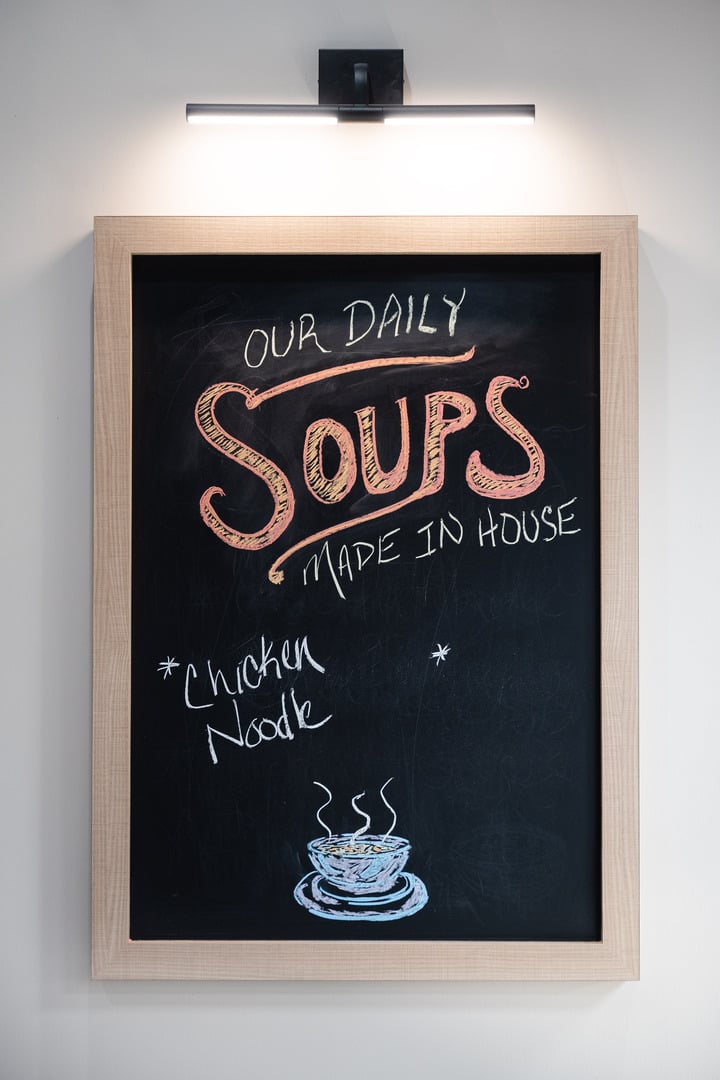 OUR DAILY
SOUPS
MADE IN HOUSE
*Chicken
Noodle
*